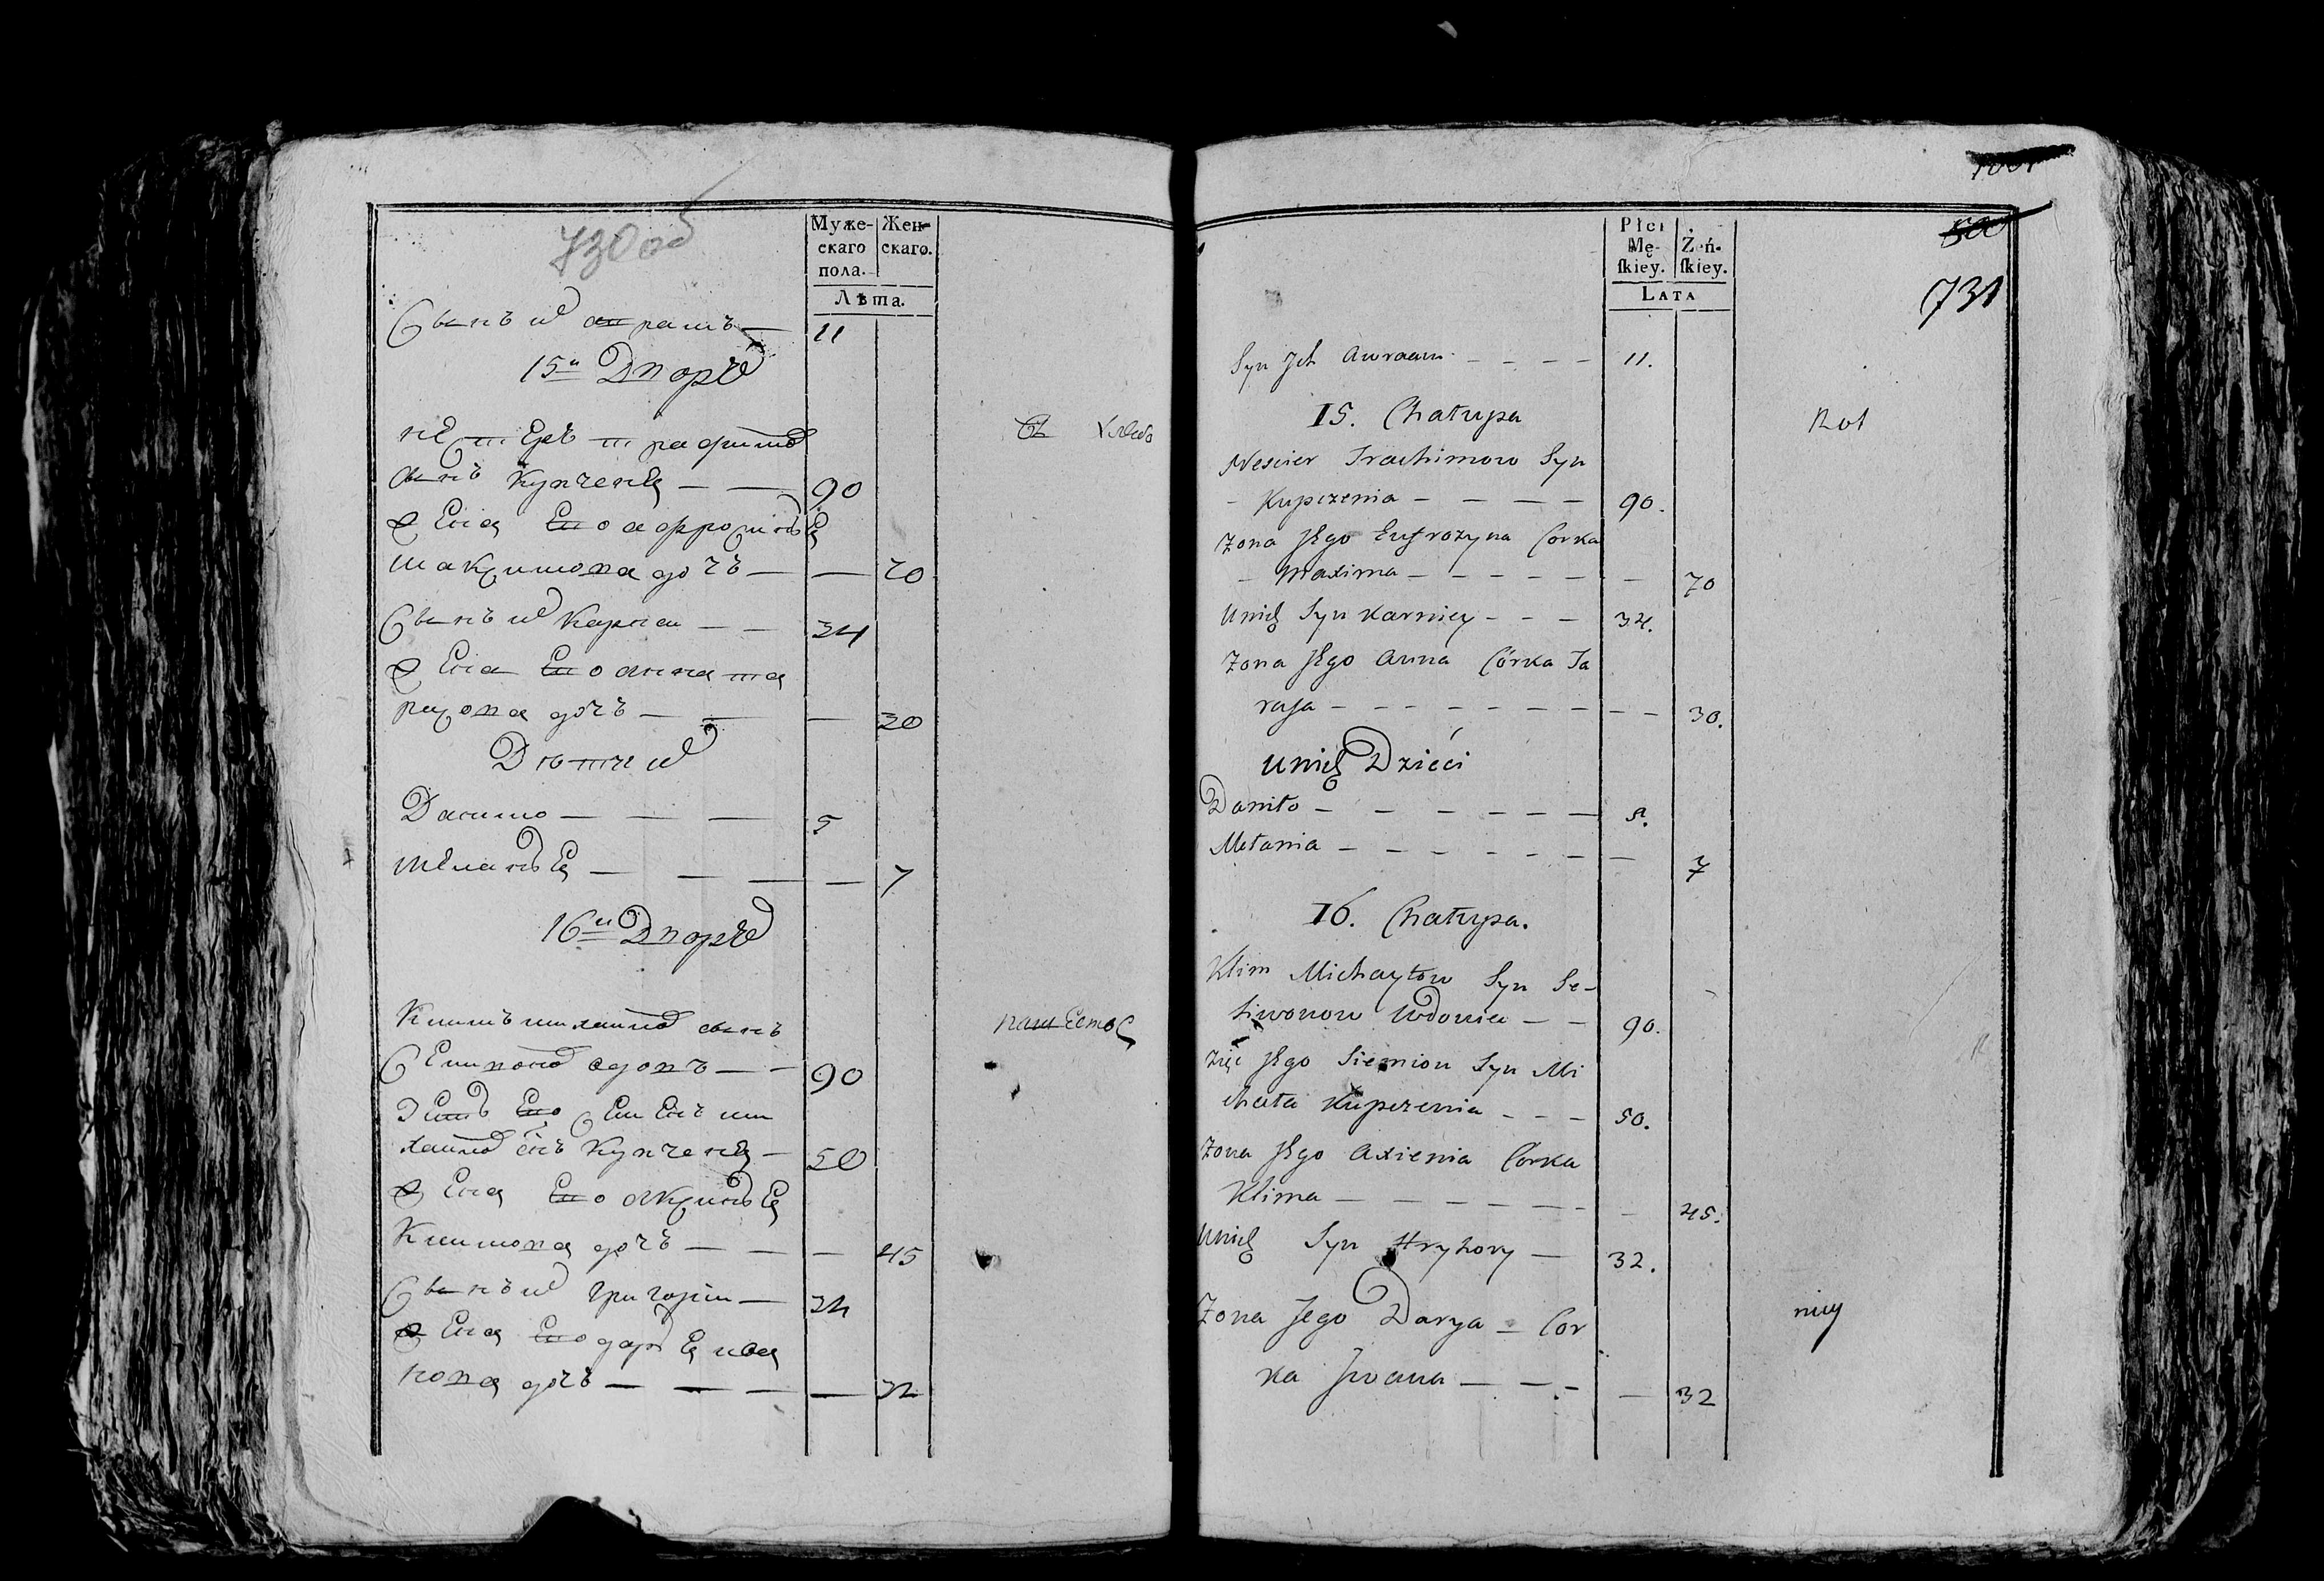 730 об
Муже-
скаго
пола.
Жен-
скаго.
Лѣта.
Сынъ их аврамъ — 11
15й Дворъ
нестеръ трафимов
сынъ Купченя — — 90
жена Его афросинья
максимова дочъ — — 70
Сынъ их Карней — — 34
жена Его анна та
расова дочъ — — — 30
Дѣти их
Данило — — — 5
меланья — — — — 7
16й Дворъ
Климъ михайлов сынъ
Селивонов вдовъ — — 90
зять Его Семенъ ми
хайлов снъ Купченя — 50
жена Его аксинья
Климова дочъ — — — 45
Сынъ их григорiй — 32
жена Его дарья ива
нова дочъ — — — — 32
Płci
Mę-
ſkiey.
Żeń-
ſkiey.
LATA
731
Syn Jch Awraam - - - - 11.
15. Chałupa
Nescier Trachimow Syn
- Kupczenia - - - - 90.
Zona Jego Eufrozyna Corka
- Maxima - - - - - - 70
Unich Syn Karniey - - - 34.
Zona Jego Anna Córka Ta
rasa - - - - - - - - - 30.
Unich Dzieci
Daniło - - - - - - 5.
Metania - - - - - - - 7
16. Chałupa.
Klim Michayłow Syn Se-
liwonow Wdowiec - - 90.
Zięć Jego Siemion Syn Mi
chała Kupczenia - - - 50.
Zona Jego Axienia Corka
Klima - - - - - - - 45.
Unich Syn Hryhory - 32.
Zona Jego Darya - Cor
ka Jwana - - - - 32